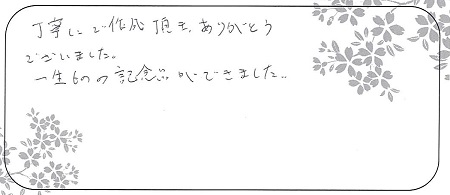 丁寧にご作成頂き、ありがとう
ございました。
一生ものの記念品ができました。